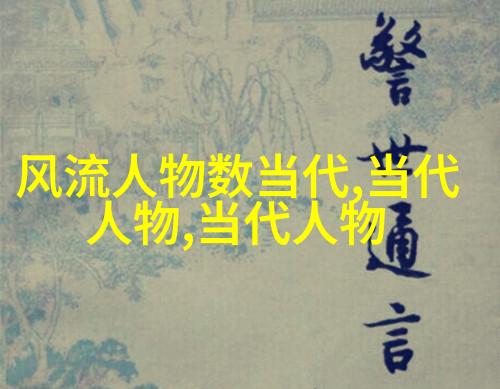 风流人物数当代,当代
人物,当代人物
警世通言